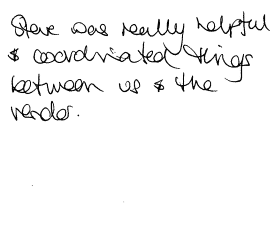 Steve was really helpful
& coordinated things
between us & the
vendor.